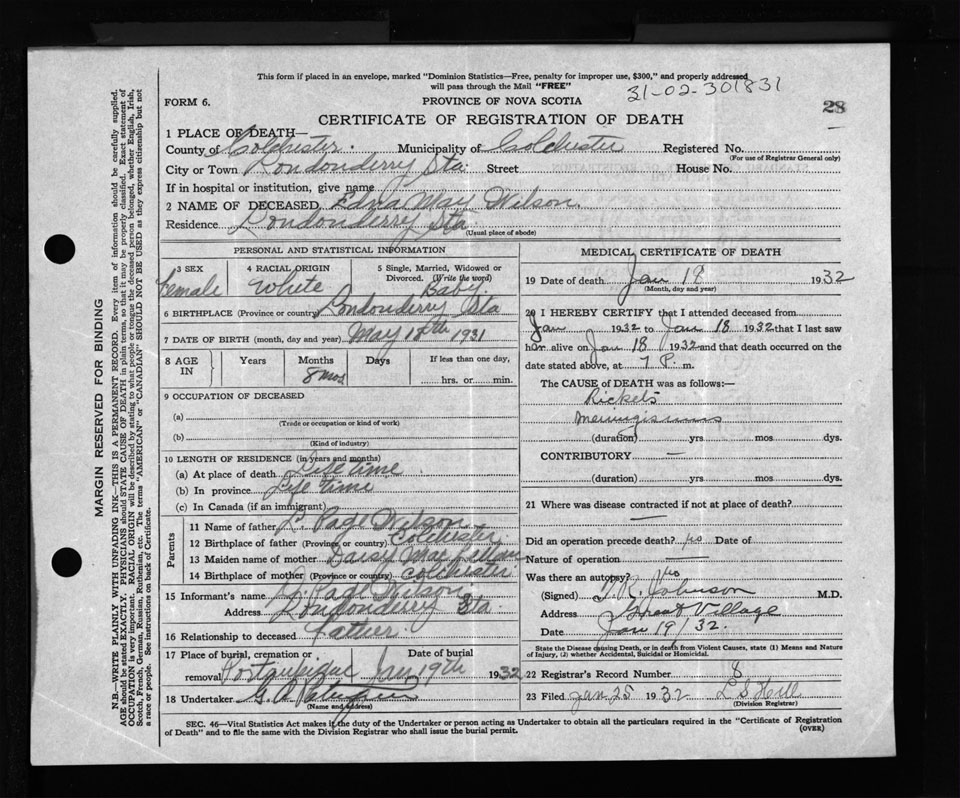 This form if placed in an envelope, marked "Dominion Statistics—Free, penalty for improper use, $300," and properly addressed
will pass through the Mail "FREE"
31-02-301831
FORM 6.
PROVINCE OF NOVA SCOTIA
28
CERTIFICATE OF REGISTRATION OF DEATH
1 PLACE OF DEATH—
County of Colchester Municipality of Colchester Registered No.
(For use of Registrar General only)
City or Town Londonderry Sta Street House No.
If in hospital or institution, give name
2 NAME OF DECEASED Edna May Wilson
Residence Londonderry Sta
(Usual place of abode)
PERSONAL AND STATISTICAL INFORMATION
3 SEX 4 RACIAL ORIGIN 5 Single, Married, Widowed or
Divorced. (Write the word)
Female White Baby
6 BIRTHPLACE (Province or country) Londonderry Sta
7 DATE OF BIRTH (month, day and year) May 18th 1931
8 AGE IN Years Months Days If less than one day,
8 mos hrs. or min.
9 OCCUPATION OF DECEASED
(a)
(Trade or occupation or kind of work)
(b)
(Kind of industry)
10 LENGTH OF RESIDENCE (in years and months)
(a) At place of death Life time
(b) In province Life time
(c) In Canada (if an immigrant)
Parents
11 Name of father L. Page Wilson
12 Birthplace of father (Province or country) Colchester
13 Maiden name of mother Daisy
14 Birthplace of mother (Province or country) Colchester
15 Informant's name L. Page Wilson
Address Londonderry Sta
16 Relationship to deceased Father
17 Place of burial, cremation or removal Date of burial
Portapique Jan 19th 1932
18 Undertaker G. A.
(Name and address)
MEDICAL CERTIFICATE OF DEATH
19 Date of death Jan 18 1932
(Month, day and year)
20 I HEREBY CERTIFY that I attended deceased from
Jan 1932 to Jan 18 1932 that I last saw
her alive on Jan 18 1932 and that death occurred on the
date stated above, at 7 P. m.
The CAUSE of DEATH was as follows:—
Rickets
Meningismus
(duration) yrs mos dys.
CONTRIBUTORY —
(duration) yrs mos dys.
21 Where was disease contracted if not at place of death?
—
Did an operation precede death? no Date of
Nature of operation —
Was there an autopsy? no
(Signed) T. R. Johnson M.D.
Address Great Village
Date Jan 19/32.
State the Disease causing Death, or in death from Violent Causes, state (1) Means and Nature
of Injury, (2) whether Accidental, Suicidal or Homicidal.
22 Registrar's Record Number 8
23 Filed Jan 25 1932 L S Hill
(Division Registrar)
SEC. 46—Vital Statistics Act makes it the duty of the Undertaker or person acting as Undertaker to obtain all the particulars required in the "Certificate of Registration
of Death" and to file the same with the Division Registrar who shall issue the burial permit.
(OVER)
MARGIN RESERVED FOR BINDING
N.B.—WRITE PLAINLY WITH UNFADING INK—THIS IS A PERMANENT RECORD. Every item of information should be carefully supplied.
AGE should be stated EXACTLY. PHYSICIANS should STATE CAUSE OF DEATH in plain terms, so that it may be properly classified. Exact statement of
OCCUPATION is very important. RACIAL ORIGIN will be described by stating to what people or tongue the deceased person belonged, whether English, Irish,
Scotch, French, German, Russian, Ruthenian, etc. The terms "AMERICAN" or "CANADIAN" SHOULD NOT BE USED as they express citizenship but not
a race or people. See instructions on back of Certificate.